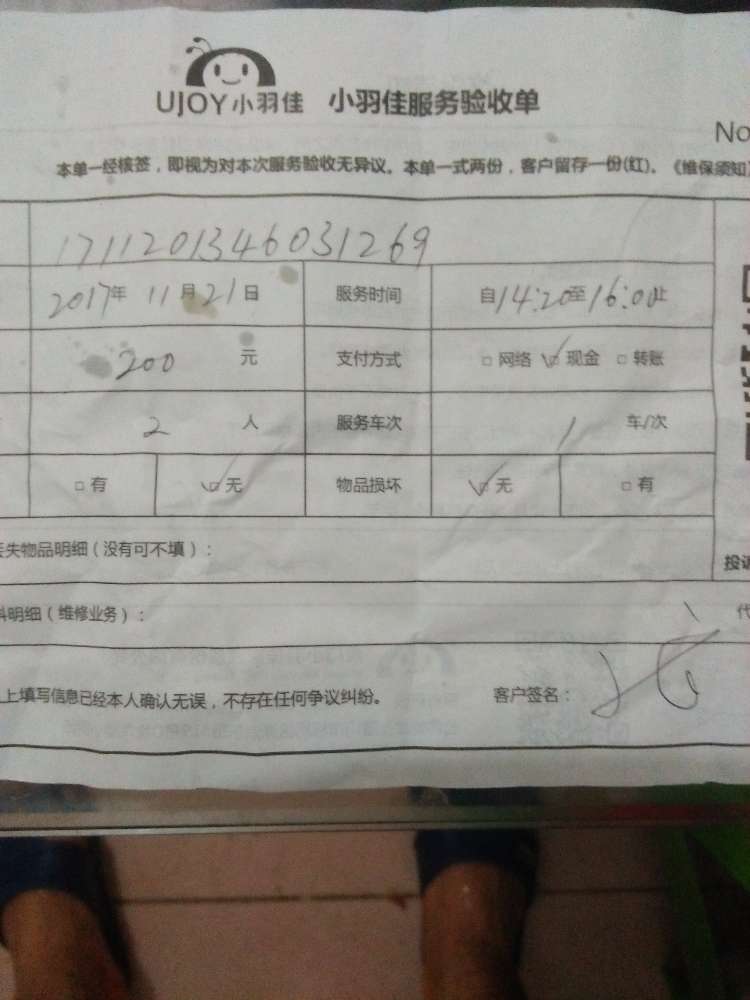 UJOY小羽佳 小羽佳服务验收单
No
本单一经核签，即视为对本次服务验收无异议。本单一式两份，客户留存一份(红)。《维保须知
1711201346031269
2017年 11月21日 服务时间 自14:20至16:00止
200 元 支付方式 □网络 ☑现金 □转账
2 人 服务车次 1 车/次
□有 ☑无 物品损坏 ☑无 □有
失物品明细（没有可不填）：
投诉
料明细（维修业务）：
代
上填写信息已经本人确认无误，不存在任何争议纠纷。 客户签名：